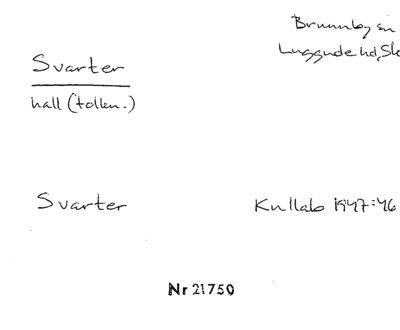 Brunnby sn
Luggude hd, Sk
Svarter
hall (tollen.)
Svarter
Kullab 1947:46
Nr 21750